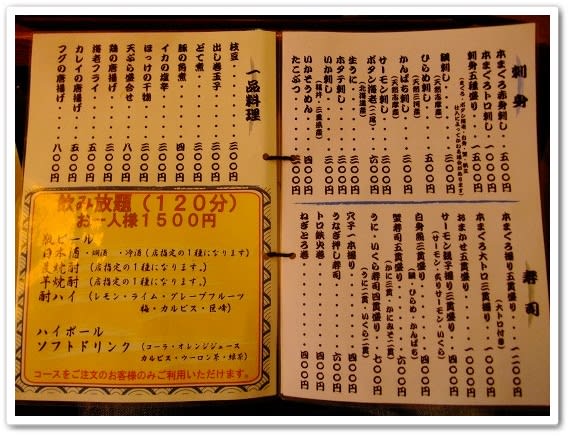 一品料理
枝豆・・・・・・・三〇〇円
出し巻玉子・・・・三〇〇円
どて煮・・・・・・五〇〇円
豚の角煮・・・・・五〇〇円
イカの塩辛・・・・三〇〇円
ほっけの干物・・・五〇〇円
天ぷら盛合せ・・・一五〇〇円
鶏の唐揚げ・・・・五〇〇円
海老フライ・・・・五〇〇円
カレイの唐揚げ・・五〇〇円
フグの唐揚げ・・・八〇〇円
飲み放題(120分)
お一人様1500円
瓶ビール
日本酒・焼酒・冷酒(店指定の1種になります)
麦焼酎(店指定の1種になります。)
芋焼酎(店指定の1種になります。)
酎ハイ(レモン・ライム・グレープフルーツ
梅・カルピス・巨峰)
ハイボール
ソフトドリンク(コーラ・オレンジジュース
カルピス・ウーロン茶・緑茶)
コースをご注文のお客様のみご利用いただけます。
刺身
本まぐろ赤身刺し・・五〇〇円
本まぐろトロ刺し・・一五〇〇円
刺身五種盛り・・・・一五〇〇円
鯛刺し
(天然志摩産)
ひらめ刺し・・・・五〇〇円
(天然三河産)
かんぱち刺し
(天然志摩産)
サーモン刺し
ボタン海老(二尾)・・六〇〇円
(北海道産)
生うに
ホタテ刺し
いか刺し
(福井・三重県産)
いかそうめん・・・四〇〇円
たこぶつ・・・三〇〇円
寿司
本まぐろ握り五貫盛り・・一二〇〇円
(大トロ付き)
本まぐろ大トロ三貫握り
おまかせ五貫盛り
サーモン親子握り三貫盛り
(サーモン、炙りサーモン、いくら)
白身魚三貫盛り・・・四〇〇円
(鯛 ひらめ かんぱち)
蟹寿司五貫盛り
(かに三貫 かにみそ二貫)
うに・いくら寿司四貫盛り
(うに二貫・いくら二貫)
穴子一本握り
うなぎ押し寿司・・・六〇〇円
トロ鉄火巻・・・四〇〇円
ねぎとろ巻・・・四〇〇円